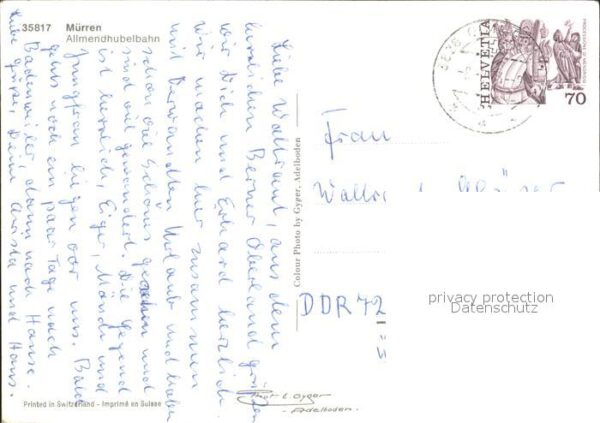 35817 Mürren
Allmendhubelbahn
Liebe Waltraut, aus dem
herrlichen Berner Oberland grüßen
wir Dich und Erhard herzlich.
Wir machen hier zusammen
mit Verwandten Urlaub und haben
schon viel Schönes gesehen und
sind viel gewandert. Die Gegend
ist herrlich, Eiger, Mönch und
Jungfrau liegen vor uns. Bald
gehts noch ein paar Tage nach
Badenweiler, dann nach Hause.
Liebe Grüße, Deine Christa und Hans.
Printed in Switzerland - Imprimé en Suisse
Colour Photo by Gyger, Adelboden
Gyger
- Adelboden -
HELVETIA
70
Frau
DDR 72
privacy protection
Datenschutz